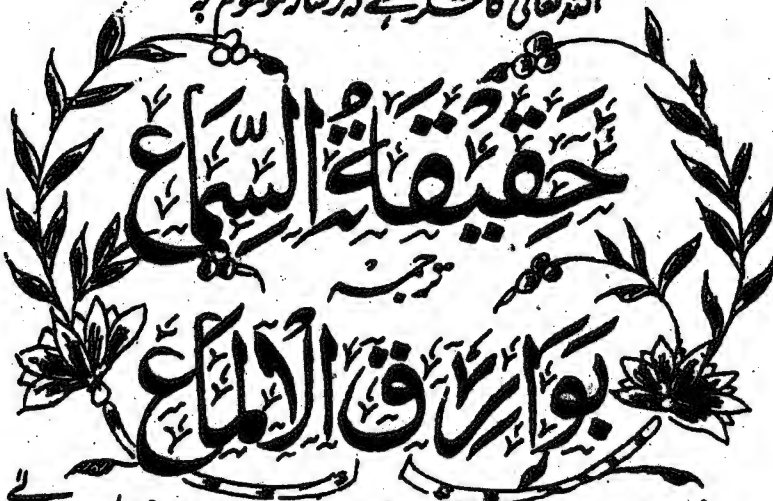 اللہ تعالیٰ کا شکر ہے کہ رسالہ موسوم بہ
حَقِيقَةُ السَّمَاعِ
ترجمہ
بَوَارِقُ الْاَلْمَاعِ